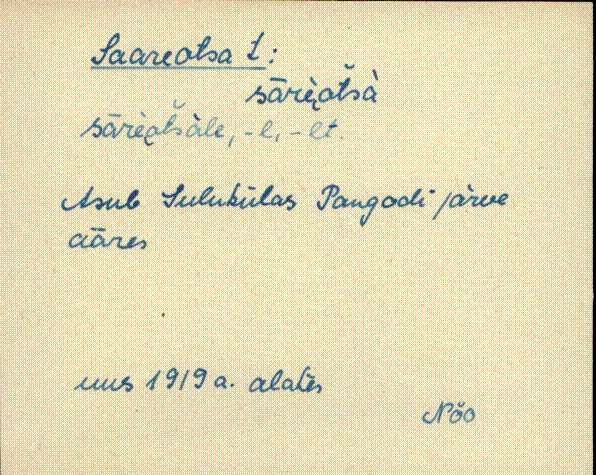 Saareotsa t:
sārèotšà
sārèotšàle, -l, -lt.
Asub Sulukülas Pangodi järve
ääres
uus 1919 a. alates
Nõo